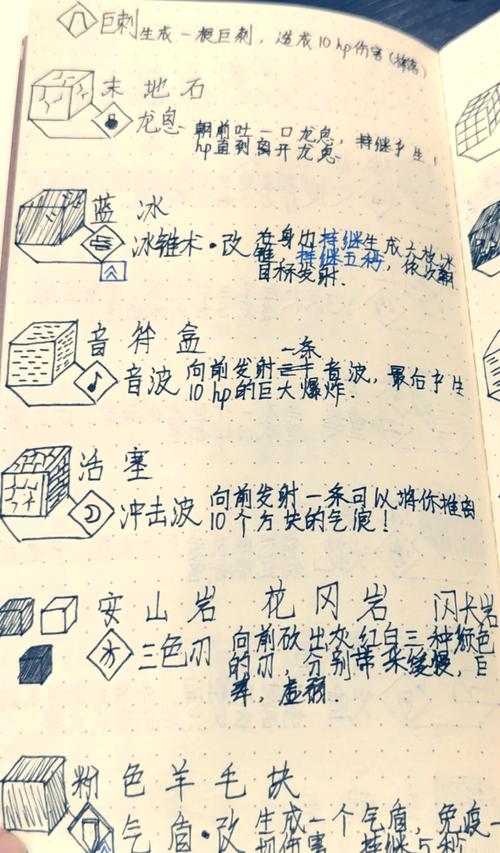 巨刺 生成一根巨刺，造成10hp伤害（
末地石
龙息 朝前吐一口龙息，持续产生1
hp直到离开龙息
蓝冰
冰锥术·改 在身边持续生成六枚冰
锥 持续五秒，依次朝
目标发射.
音符盒
一条
音波 向前发射 音波，最后产生
10hp的巨大爆炸.
活塞
冲击波 向前发射一条可以将你推离
10个方块的气浪！
安山岩 花冈岩 闪长岩
三色刃 向前砍出灰红白三种颜色
的刃，分别带来缓慢，
虚弱.
粉色羊毛块
气盾·改 生成一个气盾，免疫一
切伤害 持继5秒